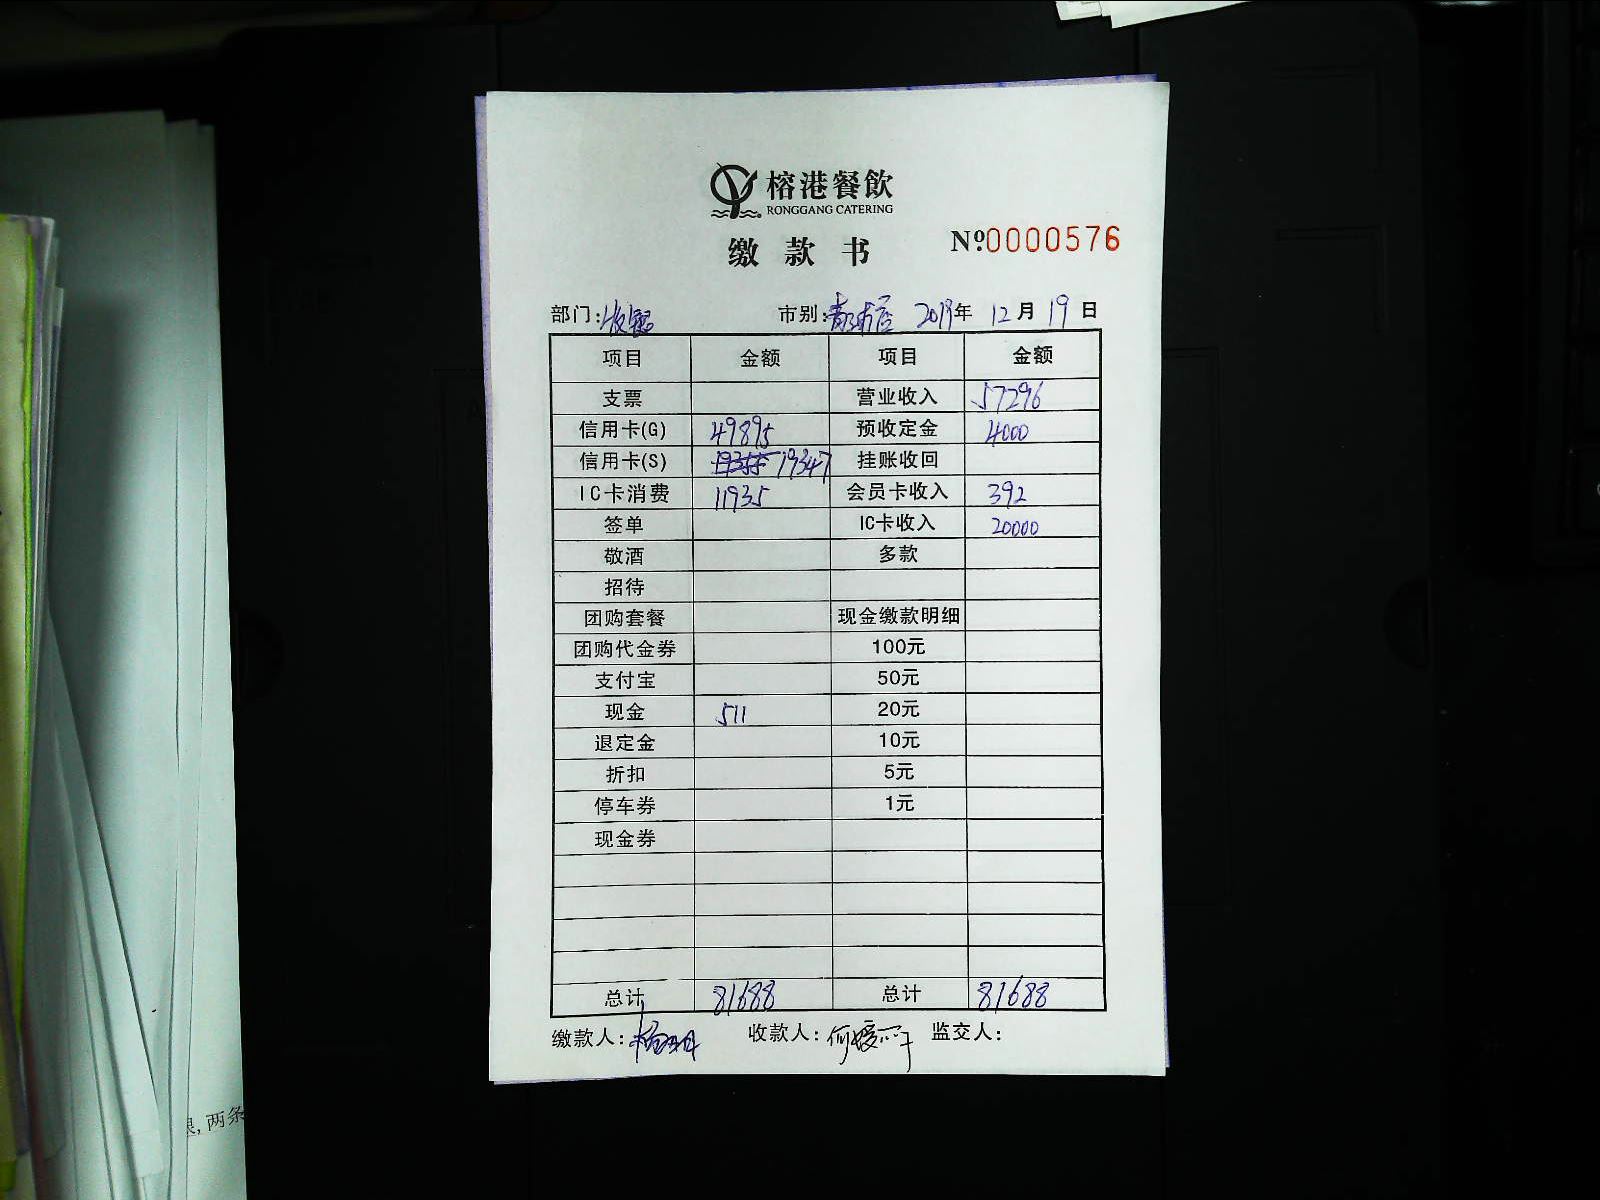 榕港餐飲
RONGGANG CATERING
缴款书 Nº0000576
部门: 市别: 2019年 12月 19日
项目 金额 项目 金额
支票 营业收入 57296
信用卡(G) 49895 预收定金 4000
信用卡(S) 19347 挂账收回
IC卡消费 11935 会员卡收入 392
签单 IC卡收入 20000
敬酒 多款
招待
团购套餐 现金缴款明细
团购代金券 100元
支付宝 50元
现金 511 20元
退定金 10元
折扣 5元
停车券 1元
现金券
总计 81688 总计 81688
缴款人: 收款人: 监交人:
两条